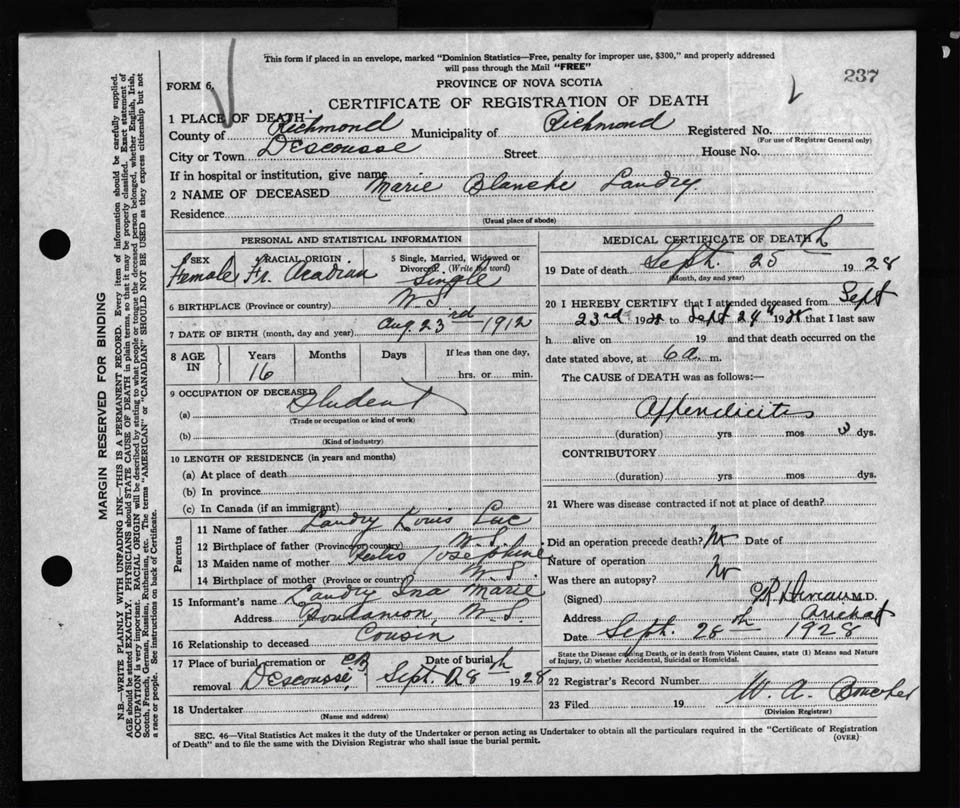 This form if placed in an envelope, marked "Dominion Statistics—Free, penalty for improper use, $300," and properly addressed
will pass through the Mail "FREE"
237
FORM 6.
PROVINCE OF NOVA SCOTIA
CERTIFICATE OF REGISTRATION OF DEATH
1 PLACE OF DEATH—
County of Richmond Municipality of Richmond Registered No.
(For use of Registrar General only)
City or Town Descousse Street House No.
If in hospital or institution, give name
2 NAME OF DECEASED Marie Blanche Landry
Residence
(Usual place of abode)
PERSONAL AND STATISTICAL INFORMATION
3 SEX Female
4 RACIAL ORIGIN Fr. Acadian
5 Single, Married, Widowed or Divorced. (Write the word) Single
6 BIRTHPLACE (Province or country) N.S.
7 DATE OF BIRTH (month, day and year) Aug 23rd 1912
8 AGE IN Years 16 Months Days If less than one day, hrs. or min.
9 OCCUPATION OF DECEASED
(a) Student
(Trade or occupation or kind of work)
(b)
(Kind of industry)
10 LENGTH OF RESIDENCE (in years and months)
(a) At place of death
(b) In province
(c) In Canada (if an immigrant)
Parents
11 Name of father Landry Louis Luc
12 Birthplace of father (Province or country) N.S.
13 Maiden name of mother Josephine
14 Birthplace of mother (Province or country) N.S.
15 Informant's name Landry Ina Marie
Address N.S.
16 Relationship to deceased Cousin
17 Place of burial, cremation or removal Descousse, C.B. Date of burial Sept. 28th 1928
18 Undertaker
(Name and address)
MEDICAL CERTIFICATE OF DEATH
19 Date of death Sept. 25th 1928
(Month, day and year)
20 I HEREBY CERTIFY that I attended deceased from Sept
23rd 1928 to Sept 24th 1928 that I last saw
h alive on 19 and that death occurred on the
date stated above, at 6 a. m.
The CAUSE of DEATH was as follows:—
Appendicitis
(duration) yrs mos 3 dys.
CONTRIBUTORY
(duration) yrs. mos. dys.
21 Where was disease contracted if not at place of death?
Did an operation precede death? No Date of
Nature of operation
Was there an autopsy? No
(Signed) M.D.
Address Arichat
Date Sept. 28th 1928
State the Disease causing Death, or in death from Violent Causes, state (1) Means and Nature
of Injury, (2) whether Accidental, Suicidal or Homicidal.
22 Registrar's Record Number
23 Filed 19 W. A. Boucher
(Division Registrar)
SEC. 46—Vital Statistics Act makes it the duty of the Undertaker or person acting as Undertaker to obtain all the particulars required in the "Certificate of Registration
of Death" and to file the same with the Division Registrar who shall issue the burial permit.
(OVER)
MARGIN RESERVED FOR BINDING
N.B.—WRITE PLAINLY WITH UNFADING INK—THIS IS A PERMANENT RECORD. Every item of information should be carefully supplied.
AGE should be stated EXACTLY. PHYSICIANS should STATE CAUSE OF DEATH in plain terms, so that it may be properly classified. Exact statement of
OCCUPATION is very important. RACIAL ORIGIN will be described by stating to what people or tongue the deceased person belonged, whether English, Irish,
Scotch, French, German, Russian, Ruthenian, etc. The terms "AMERICAN" or "CANADIAN" SHOULD NOT BE USED as they express citizenship but not
a race or people. See instructions on back of Certificate.